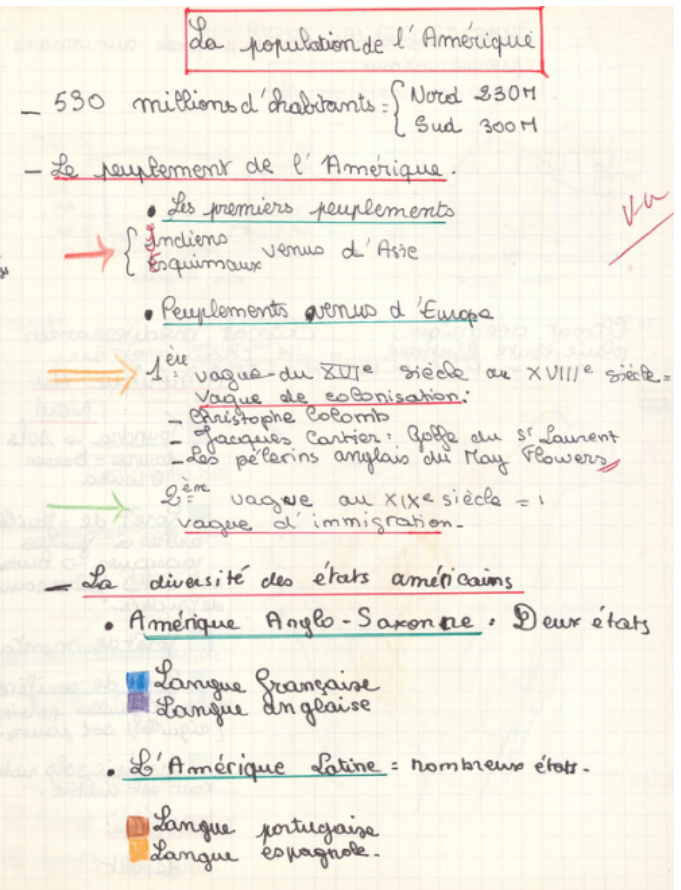 La population de l'Amérique
- 530 millions d'habitants = { Nord 230M
Sud 300M
- Le peuplement de l'Amérique.
• Les premiers peuplements
{ Indiens
Esquimaux venus d'Asie
vu
• Peuplements venus d'Europe
1ère vague du XVIe siècle au XVIIIe siècle =
Vague de colonisation:
- Christophe Colomb
- Jacques Cartier: Golfe du St Laurent
- Les pélerins anglais du May Flowers
2ème vague au XIXe siècle =
vague d'immigration.
- La diversité des états américains
• Amérique Anglo-Saxonne : Deux états
Langue française
Langue anglaise
• L'Amérique Latine = nombreux états.
Langue portugaise
Langue espagnole.